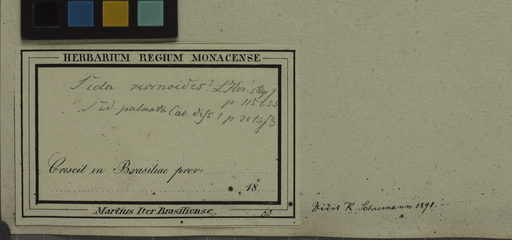 HERBARIUM REGIUM MONACENSE
Sida ricinoides? L'Her. stirp
p. 115 t. 55
Sid. palmata Cav. diss. 1 p. 20 t. 3 f. 3
Crescit in Brasiliae prov.
18
Martius Iter Brasiliense.
Vidit K. Schumann 1890.